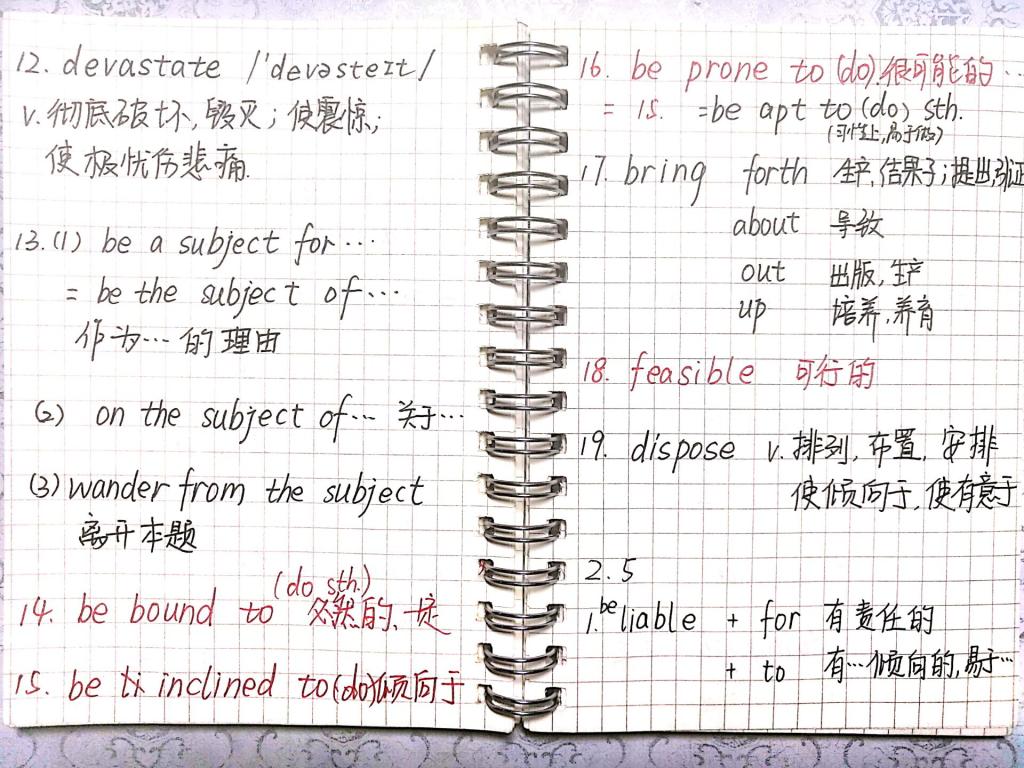 12. devastate /'devəsteɪt/
v. 彻底破坏, 毁灭; 使震惊;
使极忧伤悲痛.
13.(1) be a subject for ...
= be the subject of ...
作为...的理由
(2) on the subject of ... 关于...
(3) wander from the subject
离开本题
(do sth.)
14. be bound to 必然的、一定
15. be inclined to (do) 倾向于
16. be prone to (do). 很可能的...
= 15. = be apt to (do) sth.
17. bring forth 生产, 结果子; 提出, 引证
about 导致
out 出版, 生产
up 培养, 养育
18. feasible 可行的
19. dispose v. 排列, 布置, 安排
使倾向于, 使有意于
2.5
1. be liable + for 有责任的
+ to 有...倾向的, 易于...